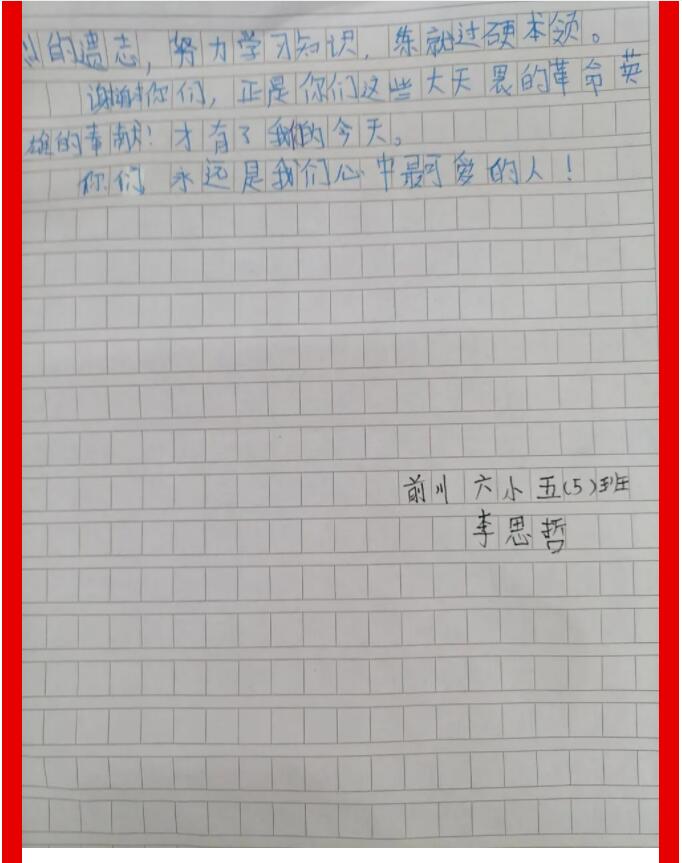 的遗志，努力学习知识，练就过硬本领。
谢谢你们，正是你们这些大天畏的革命英
雄的奉献！才有了我们的今天。
你们永远是我们心中最可爱的人！
前川六小五(5)班
李思哲